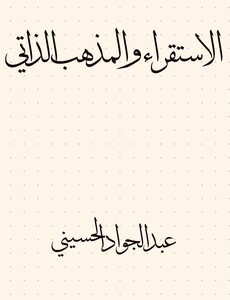 الاستقراء والمذهب الذاتي
عبد الجواد الحسيني